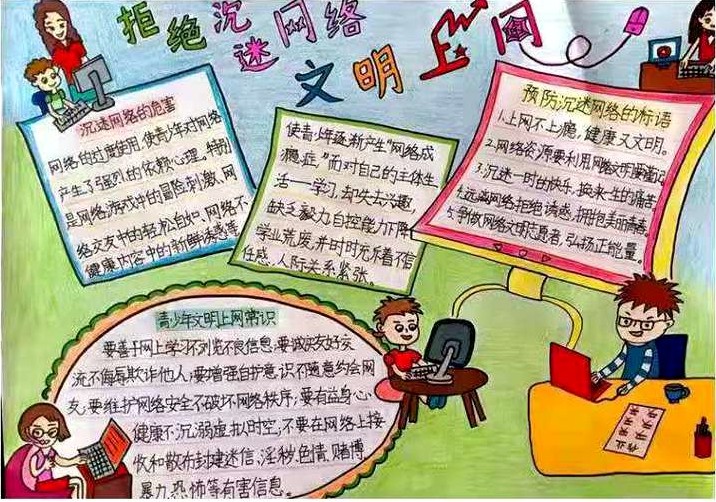 拒绝沉迷网络
文明上网
沉迷网络的危害
网络的过度使用,使青少年对网络
产生了强烈的依赖心理。特别
是网络游戏中的冒险刺激、网
络交友中的轻松自如、网络不
健康内容中的新鲜诱惑等
使青少年逐渐产生"网络成
瘾症,"而对自己的主体生
活一学习,却失去兴趣,
缺乏毅力,自控能力下降
学业荒废,并时时无不着不信
任感,人际关系紧张。
预防沉迷网络的标语
1.上网不上瘾,健康又文明。
2.网络资源要利用,网络文明要谨记
3.沉迷一时的快乐,换来一生的痛苦
4.远离网络拒绝诱惑,拥抱美丽青春
5.争做网络文明志愿者,弘扬正能量。
青少年文明上网常识
要善于网上学习不浏览不良信息;要诚实友好交
流不侮辱欺诈他人;要增强自护意识不随意约会网
友;要维护网络安全不破坏网络秩序;要有益身心
健康不沉溺虚拟时空,不要在网络上接
收和散布封建迷信、淫秽、色情、赌博
暴力、恐怖等有害信息。
作业